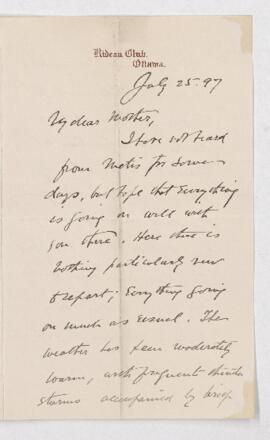 Rideau Club,
Ottawa.
July 25. 97
My dear Mother,
I have not heard
from Metis for some
days, but hope that everything
is going on well with
you there. Here there is
nothing particularly new
to report; Everything going
on much as usual. The
weather has been moderately
warm, with frequent thunder
storms accompanied by